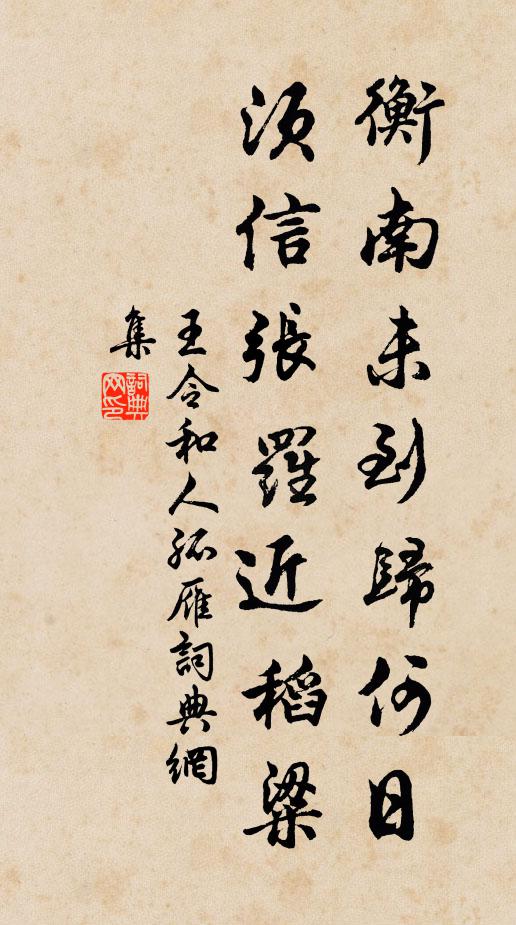 衡南未到歸何日
須信張羅近稻粱
王令和人孤雁詞典網
集
詞典
网印